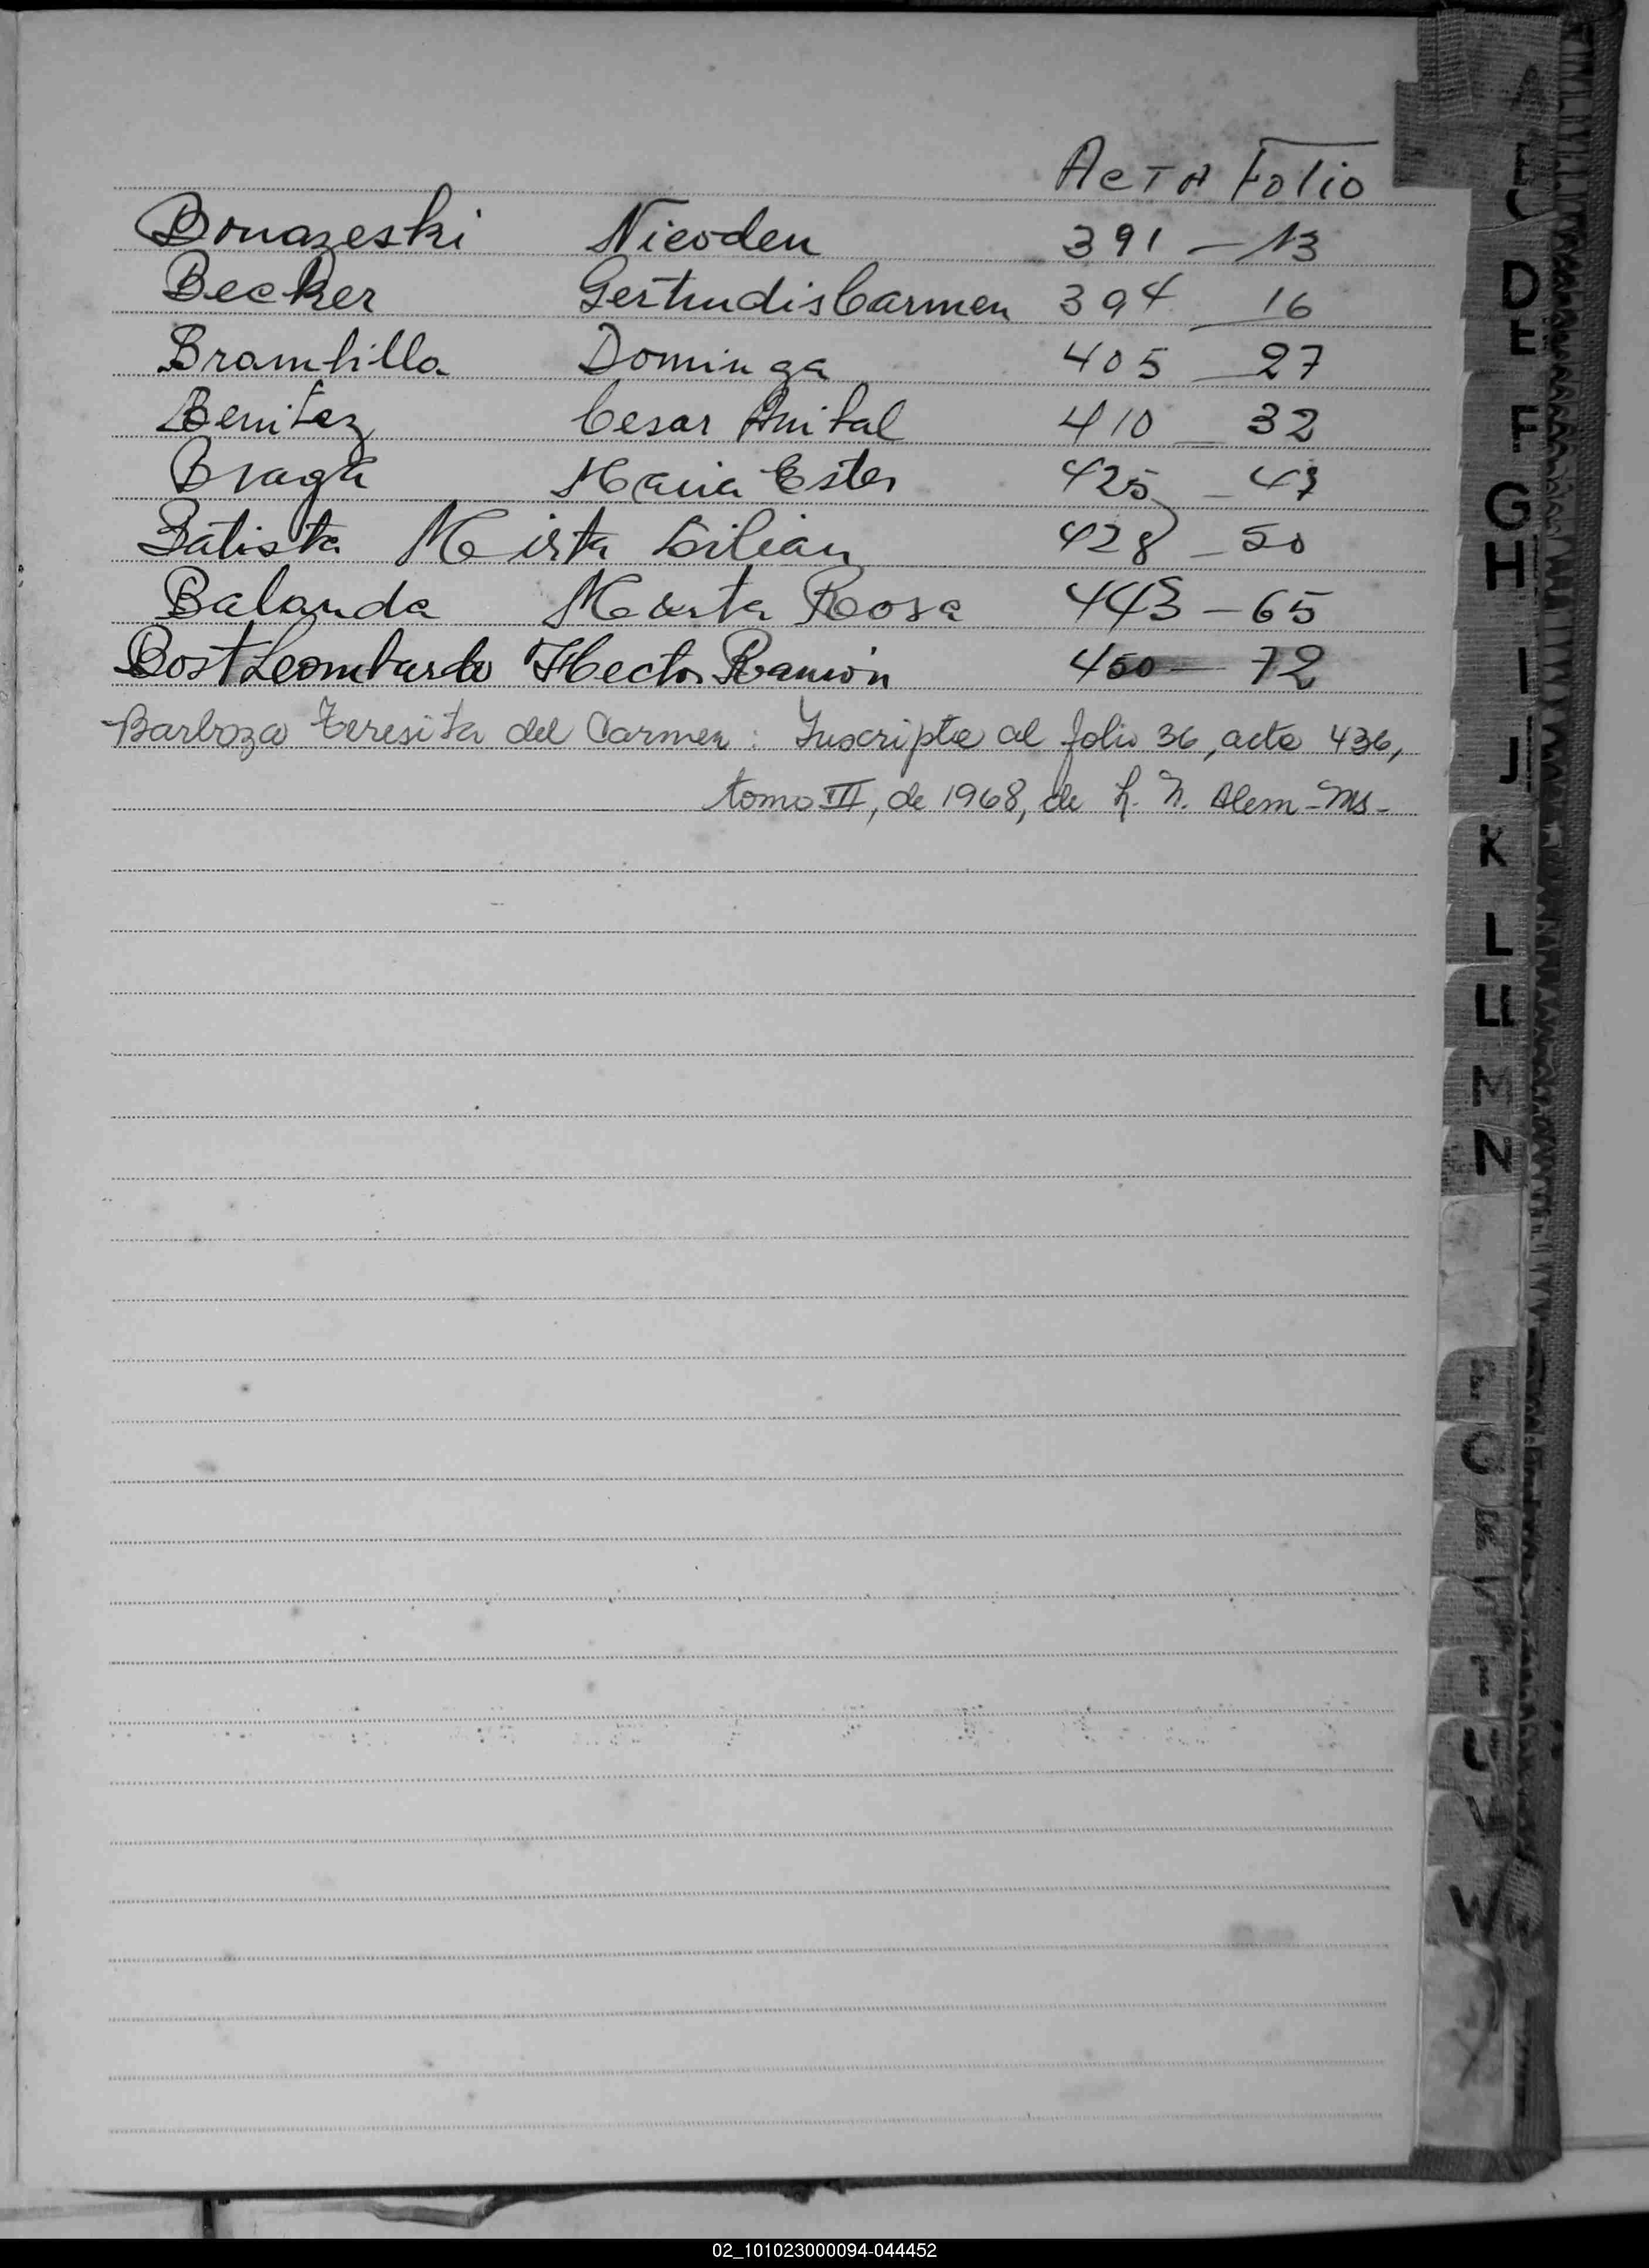 Acta Folio
Bonazeski Nicoden 391 - 13
Becker Gertrudis Carmen 394 - 16
Brambilla Dominga 405 - 27
Benitez Cesar Anibal 410 - 32
Braga Maria Ester 425 - 47
Batista Mirta Lilian 428 - 50
Balanda Marta Rosa 443 - 65
Bost Leombardo Hector Ramón 450 - 72
Barboza Teresita del Carmen: Inscripta al folio 36, acta 436,
tomo III, de 1968, de L. N. Alem - Ms -
A
D
E
F
G
H
I
J
K
L
LL
M
N
U
V
W
02_101023000094-044452